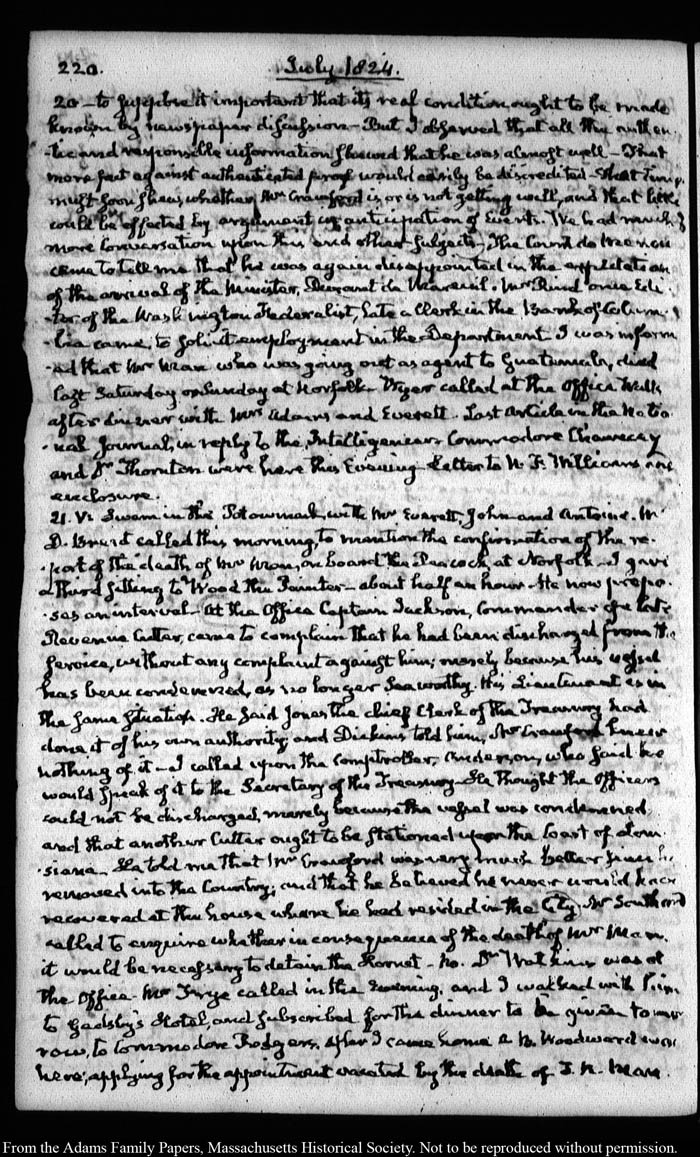 220.
July 1824.
20 – to suppose it important that its real condition ought to be made
known by newspaper discussion – But I observed that all the authen-
-tic and responsible information shewed that he was almost well – That
more fact against authenticated proof would easily be discredited – that Time
must soon shew, whether Mr Crawford is, or is not getting well, and that little
could be effected by argument in anticipation of Events. We had much
more Conversation upon this and other subjects – The Count de Menou
came to tell me that he was again disappointed in the expectation
of the arrival of the Minister, Durant de Mareuil. Mr Rind once Edi-
-tor of the Washington Federalist, late a Clerk in the Bank of Colum-
-bia came, to solicit employment in the Department. I was inform-
-ed that Mr Mann who was going out as agent to Guatemala, died
last Saturday or Sunday at Norfolk. Wyer called at the Office. Walk
after dinner with Mrs Adams and Everett. Last Article in the Natio-
-nal Journal, in reply to the Intelligencer. Commodore Chauncey
and Dr Thornton were here this Evening. Letter to N. F. Williams and
enclosure.
21. V. Swam in the Potowmack, with Mr Everett, John and Antoine. Mr
D. Brent called this morning, to mention the confirmation of the re-
-port of the death of Mr Mann, on board the Peacock, at Norfolk – I gave
a third sitting to Wood the Painter – about half an hour – He now propo-
-ses an interval – At the Office Captain Jackson, Commander of a late
Revenue Cutter, came to complain that he had been discharged from the
service, without any complaint against him; merely because his vessel
has been condemned, as no longer Seaworthy. His Lieutenant is in
the same situation. He said Jones the chief Clerk of the Treasury had
done it of his own authority; and Dickins told him, Mr Crawford knew
nothing of it – I called upon the Comptroller, Anderson, who said he
would speak of it to the Secretary of the Treasury – He thought the Officers
could not be discharged, merely because the vessel was condemned
and that another Cutter ought to be stationed upon the Coast of Loui-
-siana. He told me that Mr Crawford was very much better since he
removed into the Country; and that he believed he never would have
recovered at the house where he had resided in the City. Mr Southard
called to enquire whether in consequence of the death of Mr Mann
it would be necessary to detain the Hornet – No. Dr Watkins was at
the Office. Mr Frye called in the Evening, and I walked with him
to Gadsby's Hotel, and subscribed for the dinner to be given to mor-
row, to Commodore Rodgers. After I came home A. B. Woodward was
here; applying for the appointment vacated by the death of T. N. Mann.
From the Adams Family Papers, Massachusetts Historical Society. Not to be reproduced without permission.